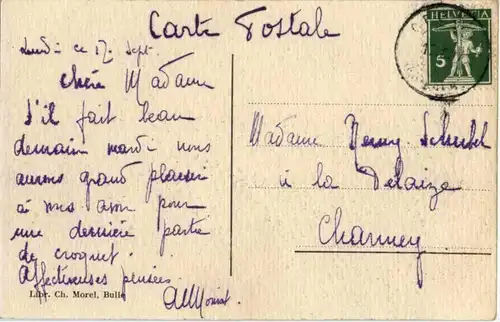 Carte Postale
Lundi ce 17. Sept.
Chère Madame
S'il fait beau
demain mardi nous
aurons grand plaisir
à vous avoir pour
une dernière partie
de croquet.
Affectueuses pensées.
Libr. Ch. Morel, Bulle
HELVETIA
5
Madame
à la
Charmey